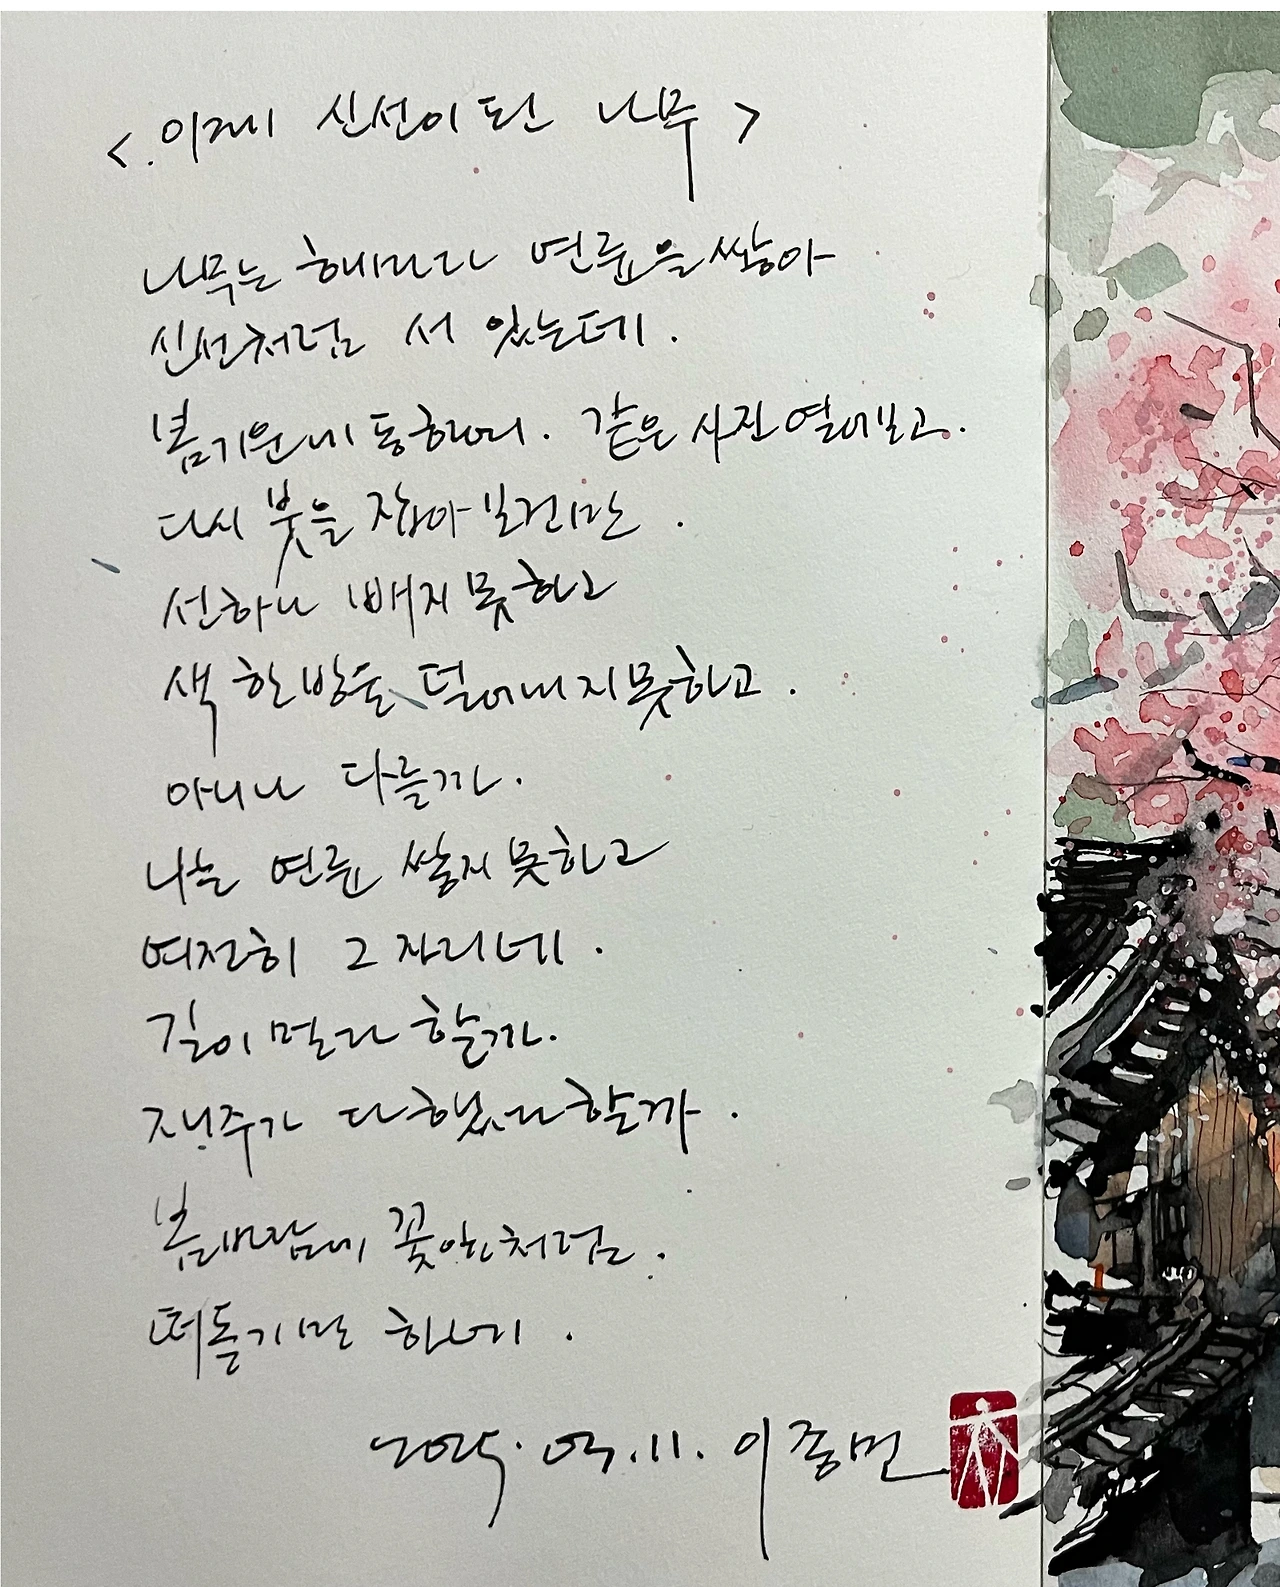 <이제 신선이 된 나무>
나무는 해마다 연륜을 쌓아
신선처럼 서 있는데.
봄기운에 동하여. 같은 사진 열어보고.
다시 붓을 잡아 보건만.
선하나 빼지 못하고
색 한방울 덜어내지 못하고.
아니나 다를까.
나는 연륜 쌓지 못하고
여전히 그 자리네.
길이 멀다 할까.
재주가 다했다 할까.
봄바람에 꽃잎처럼.
떠돌기만 하네.
2025.03.11. 이종민